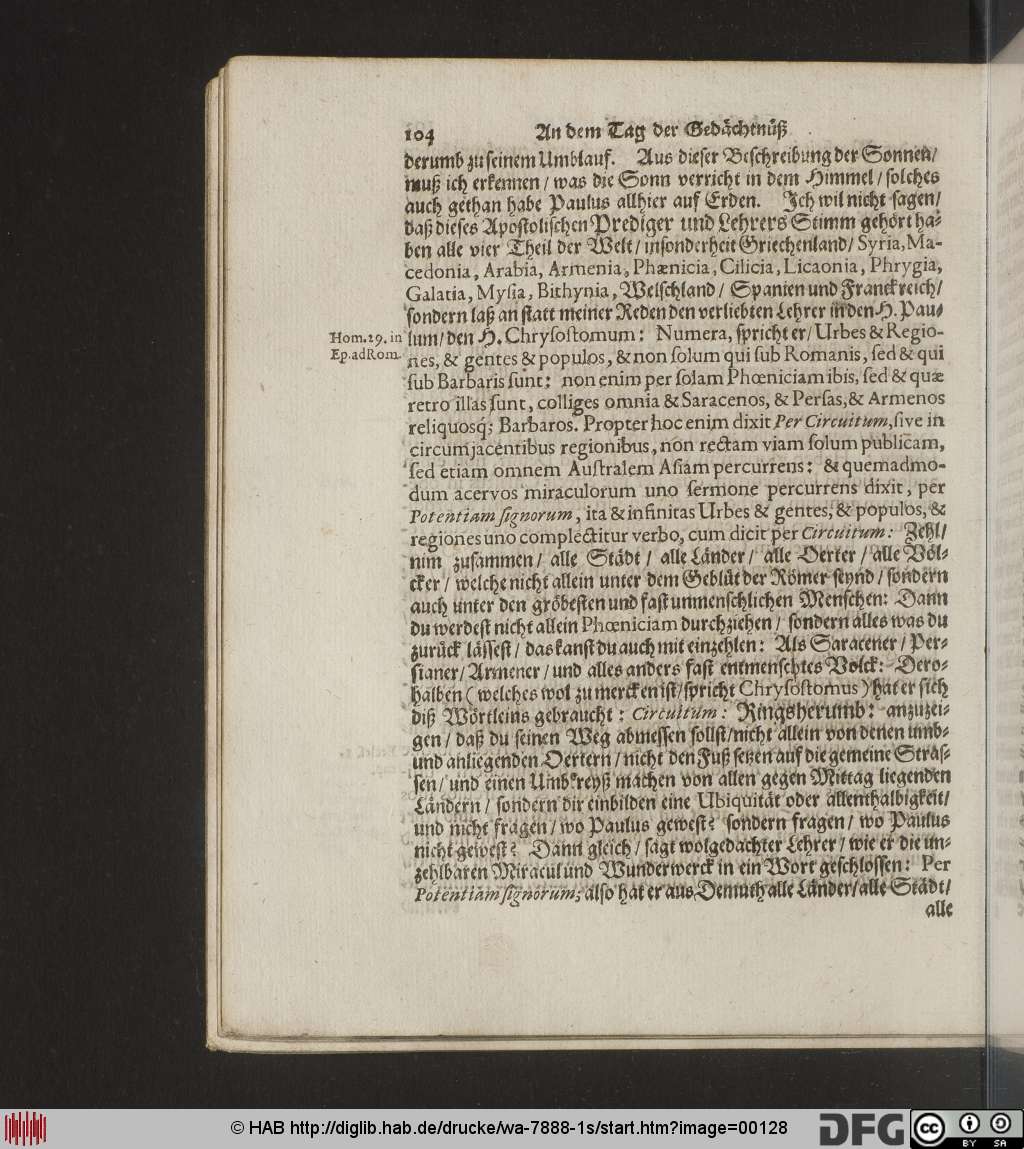 104 An dem Tag der Gedächtnüß
derumb zu seinem Umblauf. Aus dieser Beschreibung der Sonnen/
muß ich erkennen / was die Sonn verricht in dem Himmel / solches
auch gethan habe Paulus allhier auf Erden. Ich wil nicht sagen/
daß dieses Apostolischen Prediger und Lehrers Stimm gehört ha-
ben alle vier Theil der Welt / insonderheit Griechenland/ Syria, Ma-
cedonia, Arabia, Armenia, Phænicia, Cilicia, Licaonia, Phrygia,
Galatia, Mysia, Bithynia, Welschland / Spanien und Franckreich/
sondern laß an statt meiner Reden den verliebten Lehrer in den H. Pau-
Hom. 29. in
Ep. ad Rom.
lum/ den H. Chrysostomum: Numera, spricht er/ Urbes & Regio-
nes, & gentes & populos, & non solum qui sub Romanis, sed & qui
sub Barbaris sunt: non enim per solam Phœniciam ibis, sed & quæ
retro illas sunt, colliges omnia & Saracenos, & Persas, & Armenos
reliquosq; Barbaros. Propter hoc enim dixit Per Circuitum, sive in
circumjacentibus regionibus, non rectam viam solum publicam,
sed etiam omnem Australem Asiam percurrens: & quemadmo-
dum acervos miraculorum uno sermone percurrens dixit, per
Potentiam signorum, ita & infinitas Urbes & gentes, & populos, &
regiones uno complectitur verbo, cum dicit per Circuitum: Zehl/
nim zusammen / alle Städt / alle Länder / alle Oerter / alle Völ-
cker / welche nicht allein unter dem Geblüt der Römer seynd / sondern
auch unter den gröbesten und fast unmenschlichen Menschen: Dann
du werdest nicht allein Phœniciam durchziehen / sondern alles was du
zurück lässest / das kanst du auch mit einzehlen: Als Saracener / Per-
sianer/ Armener / und alles anders fast entmenschtes Volck: Dero-
halben ( welches wol zu mercken ist/ spricht Chrysostomus ) hat er sich
diß Wörtleins gebraucht: Circuitum: Ringsherumb: anzuzei-
gen / daß du seinen Weg abmessen sollst / nicht allein von denen umb-
und anliegenden Oertern / nicht den Fuß setzen auf die gemeine Stras-
sen / und einen Umbkreyß machen von allen gegen Mittag liegenden
Ländern / sondern dir einbilden eine Ubiquität oder allenthalbigkeit/
und nicht fragen / wo Paulus gewest? sondern fragen / wo Paulus
nicht gewest? Dann gleich / sagt wolgedachter Lehrer / wie er die un-
zehlbaren Miracul und Wunderwerck in ein Wort geschlossen: Per
Potentiam signorum; also hat er aus Demuth alle Länder/ alle Städt/
alle
© HAB http://diglib.hab.de/drucke/wa-7888-1s/start.htm?image=00128
DFG
cc BY SA